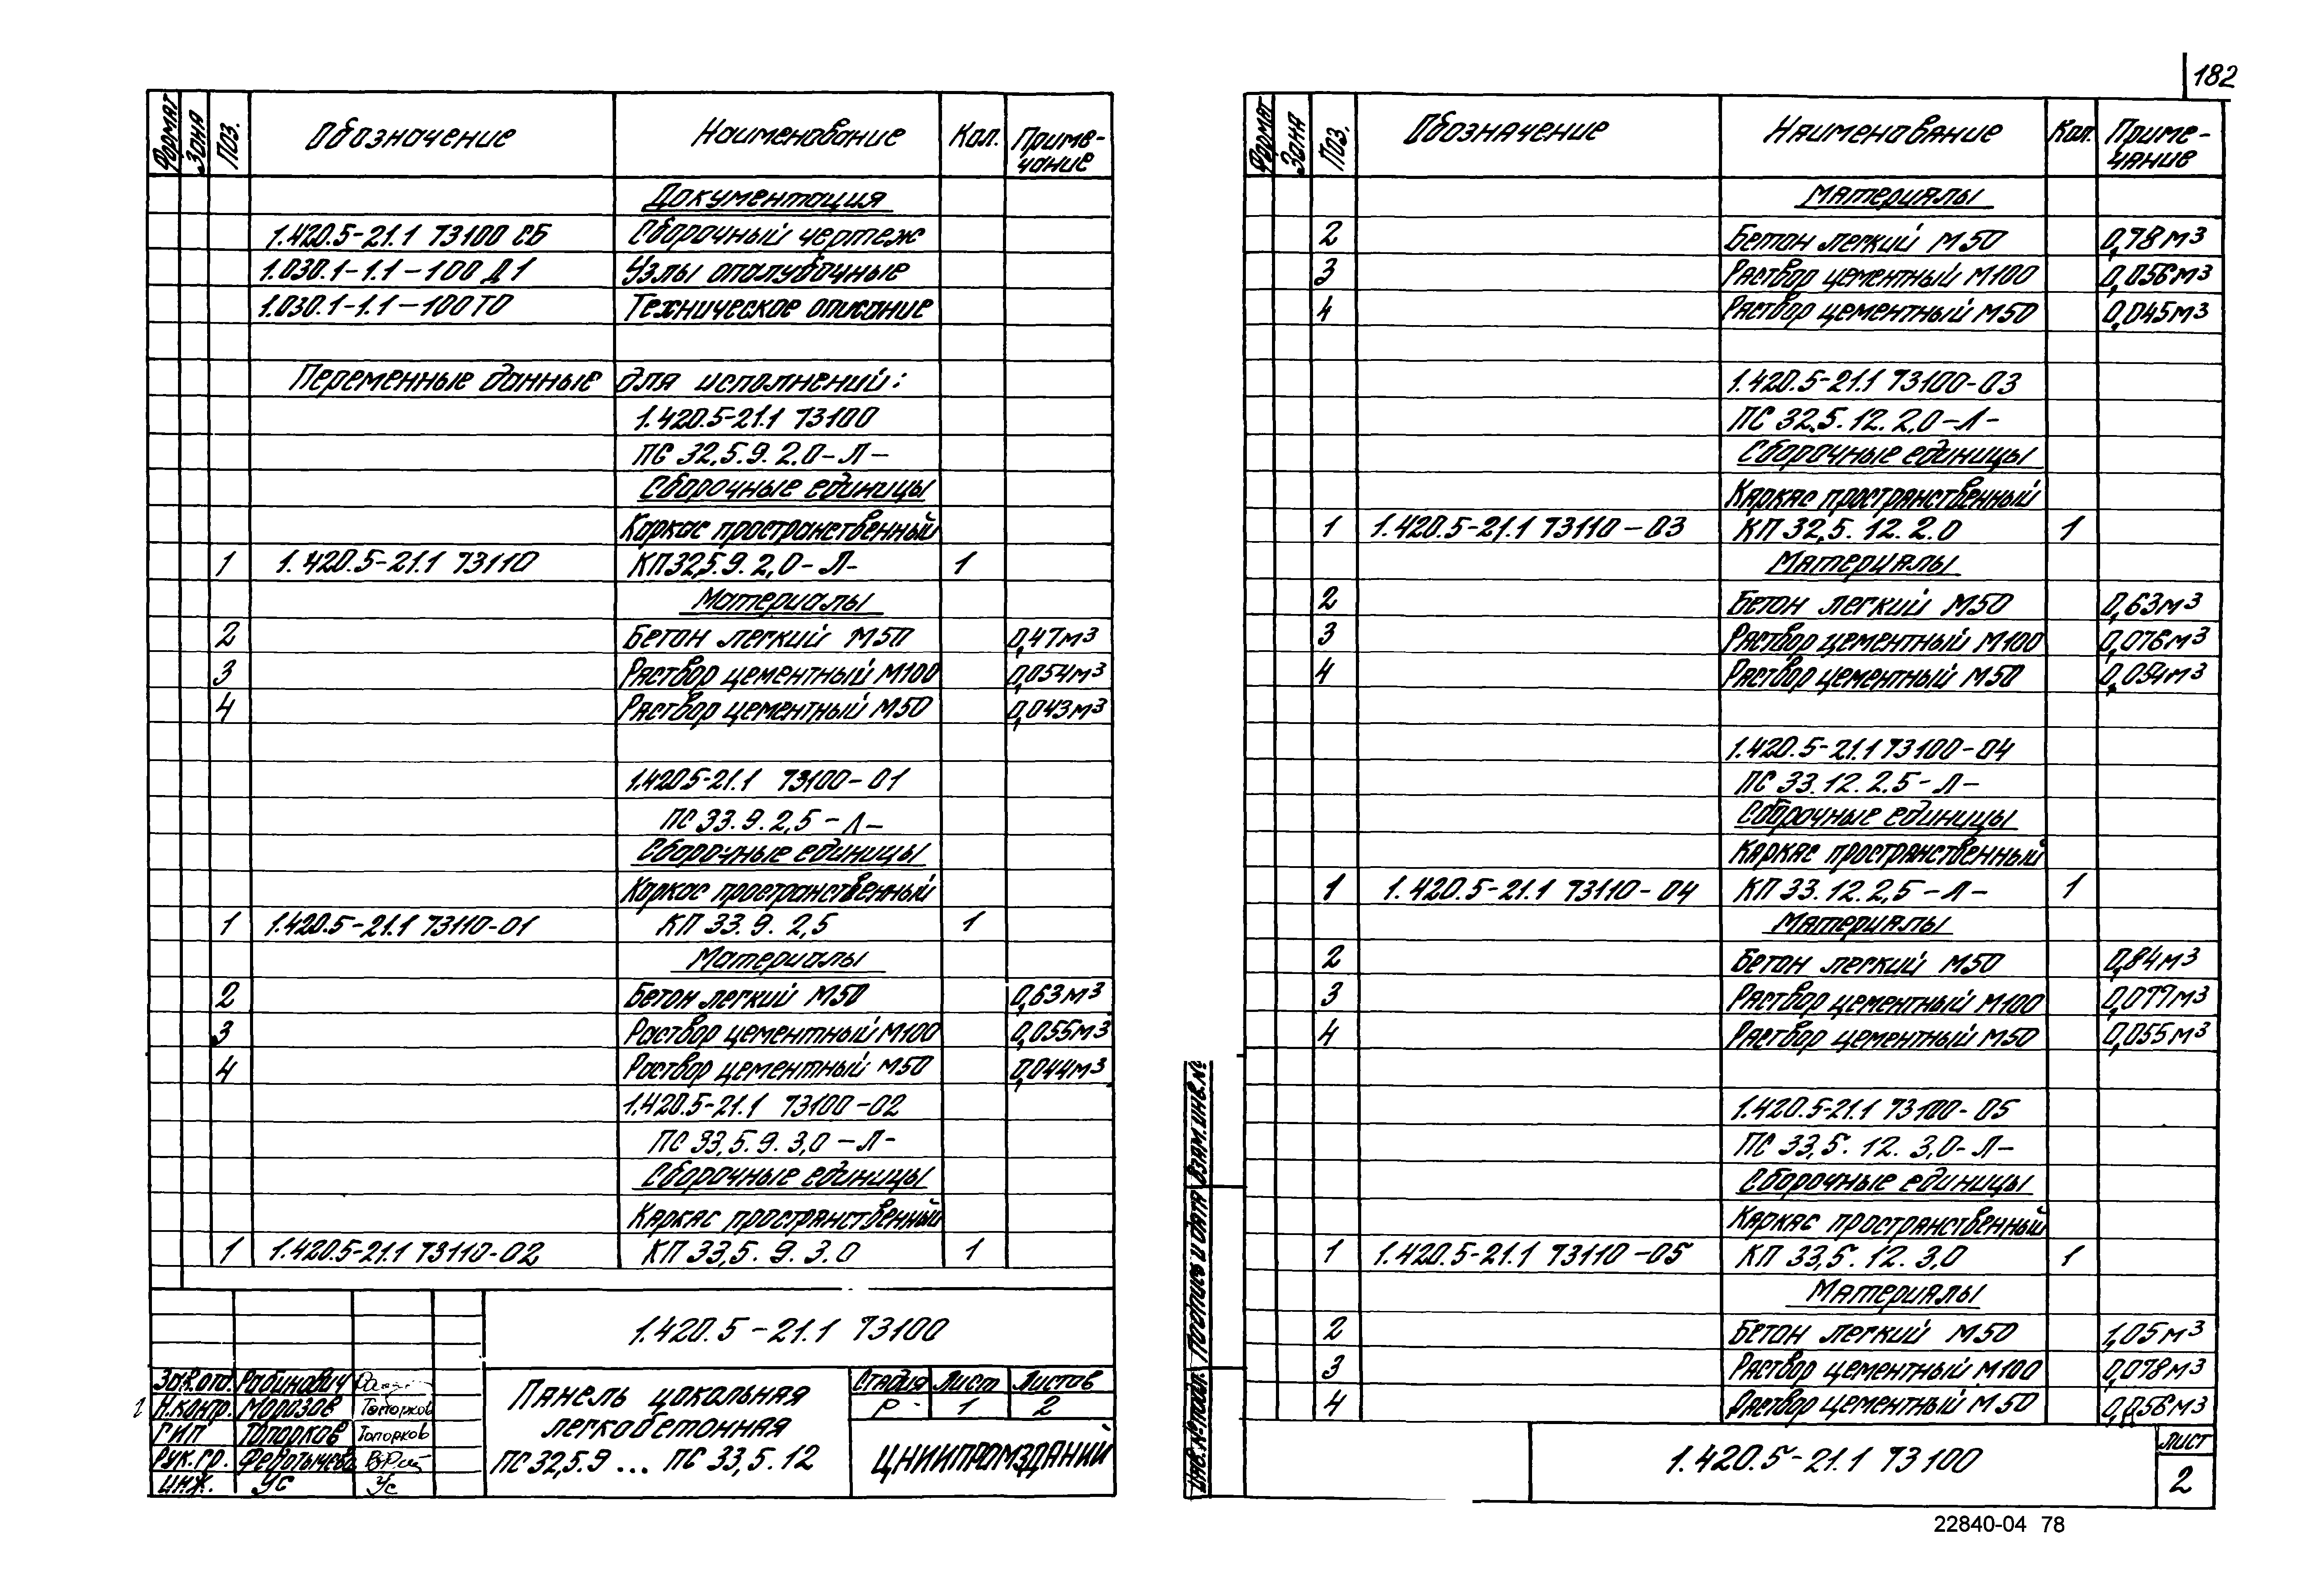 182
Формат Зона Поз. Обозначение Наименование Кол. Приме-
чание
Документация
1.420.5-21.1 73100 СБ Сборочный чертеж
1.030.1-1.1-100 Д1 Узлы опалубочные
1.030.1-1.1-100ТО Техническое описание
Переменные данные для исполнений:
1.420.5-21.1 73100
ПС 32,5.9.2,0-Л-
Сборочные единицы
Каркас пространственный
1 1.420.5-21.1 73110 КП32,5.9.2,0-Л- 1
Материалы
2 Бетон легкий М50 0,47м3
3 Раствор цементный М100 0,054м3
4 Раствор цементный М50 0,043м3
1.420.5-21.1 73100-01
ПС 33.9.2,5-Л-
Сборочные единицы
Каркас пространственный
1 1.420.5-21.1 73110-01 КП 33.9.2,5 1
Материалы
2 Бетон легкий М50 0,63м3
3 Раствор цементный М100 0,055м3
4 Раствор цементный М50 0,044м3
1.420.5-21.1 73100-02
ПС 33,5.9.3,0-Л-
Сборочные единицы
Каркас пространственный
1 1.420.5-21.1 73110-02 КП 33,5.9.3.0 1
1.420.5-21.1 73100
Зав.отд. Рабинович
Н.контр. Морозов Топорков
ГИП Топорков Топорков
Рук.гр.
Инж. Ус Ус
Панель цокольная
легкобетонная
ПС 32,5.9 ... ПС 33,5.12
Стадия Лист Листов
Р 1 2
ЦНИИПРОМЗДАНИЙ
Формат Зона Поз. Обозначение Наименование Кол. Приме-
чание
Материалы
2 Бетон легкий М50 0,78м3
3 Раствор цементный М100 0,056м3
4 Раствор цементный М50 0,045м3
1.420.5-21.1 73100-03
ПС 32,5.12.2,0-Л-
Сборочные единицы
Каркас пространственный
1 1.420.5-21.1 73110-03 КП 32,5.12.2.0 1
Материалы
2 Бетон легкий М50 0,63м3
3 Раствор цементный М100 0,076м3
4 Раствор цементный М50 0,054м3
1.420.5-21.1 73100-04
ПС 33.12.2.5-Л-
Сборочные единицы
Каркас пространственный
1 1.420.5-21.1 73110-04 КП 33.12.2,5-Л- 1
Материалы
2 Бетон легкий М50 0,84м3
3 Раствор цементный М100 0,077м3
4 Раствор цементный М50 0,055м3
1.420.5-21.1 73100-05
ПС 33,5.12.3,0-Л-
Сборочные единицы
Каркас пространственный
1 1.420.5-21.1 73110-05 КП 33,5.12.3,0 1
Материалы
2 Бетон легкий М50 1,05м3
3 Раствор цементный М100 0,078м3
4 Раствор цементный М50 0,056м3
Инв.№подл. Подпись и дата Взам.инв.№
1.420.5-21.1 73100
Лист
2
22840-04 78